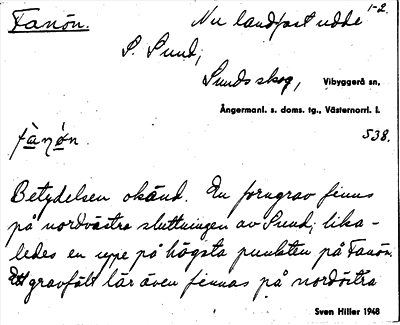 Fanön. Nu landfast udde 1-2.
S. Sund,
Sundsskog, Vibyggerå sn,
Ångermanl. s. doms. tg., Västernorrl. l.
fànó̱n. 538.
Betydelsen okänd. En forngrav finns
på nordvästra sluttningen av Sund; lika-
ledes en uppe på högsta punkten på Fanön.
Ett gravfält lär även finnas på nordöstra
Sven Hiller 1948